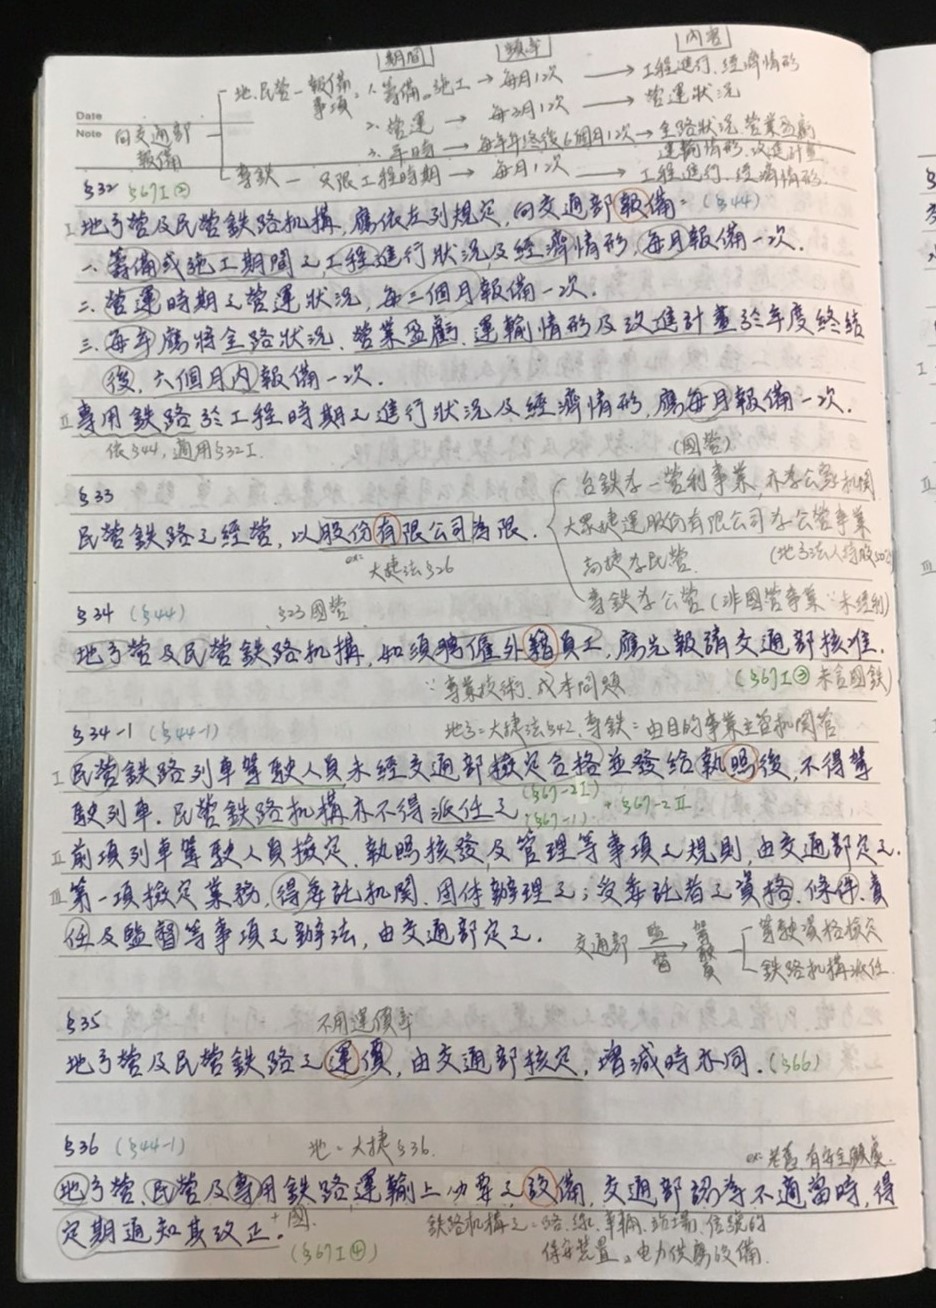 期間 頻率 內容
地.民營-報備事項: 1.籌備。施工 → 每月1次 → 工程進行.經濟情形
2. 營運 → 每3月1次 → 營運狀況
3. 年時 → 每年年終後6個月1次 → 全路狀況.營業盈虧
運輸情形.改進計畫
Date
Note 向交通部
報備
專鉄 — 只限工程時期 → 每月1次 → 工程進行.經濟情形.
§32 §67I②
I 地方營及民營鉄路机構,應依左列規定,向交通部報備: (§44)
一.籌備或施工期間之工程進行狀況及經濟情形,每月報備一次.
二.營運時期之營運狀況,每三個月報備一次.
三.每年應將全路狀況.營業盈虧.運輸情形及改進計畫於年度終結
後.六個月內報備一次.
II 專用鉄路於工程時期之進行狀況及經濟情形,應每月報備一次.
依§44,適用§32I.
(國營)
§33
台鉄為-營利事業,亦為公務机関
民營鉄路之經營,以股份有限公司為限.
大眾捷運股份有限公司為公營事業
ex: 大捷法§26
高捷為民營.
(地方法人持股50%)
專鉄為公營(非國營事業∵未經利)
§34 (§44) §23國營
地方營及民營鉄路机構,如須聘僱外籍員工,應先報請交通部核准.
∵專業技術.成本問題 (§67I③未含國鉄)
§34-1 (§44-1) 地方=大捷法§42.專鉄=由目的事業主管机関管
I 民營鉄路列車駕駛人員未經交通部檢定合格並發給執照後,不得駕
駛列車.民營鉄路机構亦不得派任之. (§67-2I) (§67-1) §67-2II
II 前項列車駕駛人員檢定.執照核發及管理等事項之規則,由交通部定之.
III 第一項檢定業務,得委託机関.団体辦理之;受委託者之資格.條件.責
任及監督等事項之辦法,由交通部定之.
交通部 監督→ 駕駛員 駕駛資格檢定
鉄路机構派任.
§35 不用運價率
地方營及民營鉄路之運價,由交通部核定,增減時亦同.(§66)
§36 (§44-1) 地=大捷§36. ex:老舊.有安全顧慮.
地方營.民營及專用鉄路運輸上必要之設備,交通部認為不適當時,得
定期通知其改正. +國.
(§67I④)
鉄路机構之=路.線.車輛.站場.信號的
保安裝置。电力供應設備.